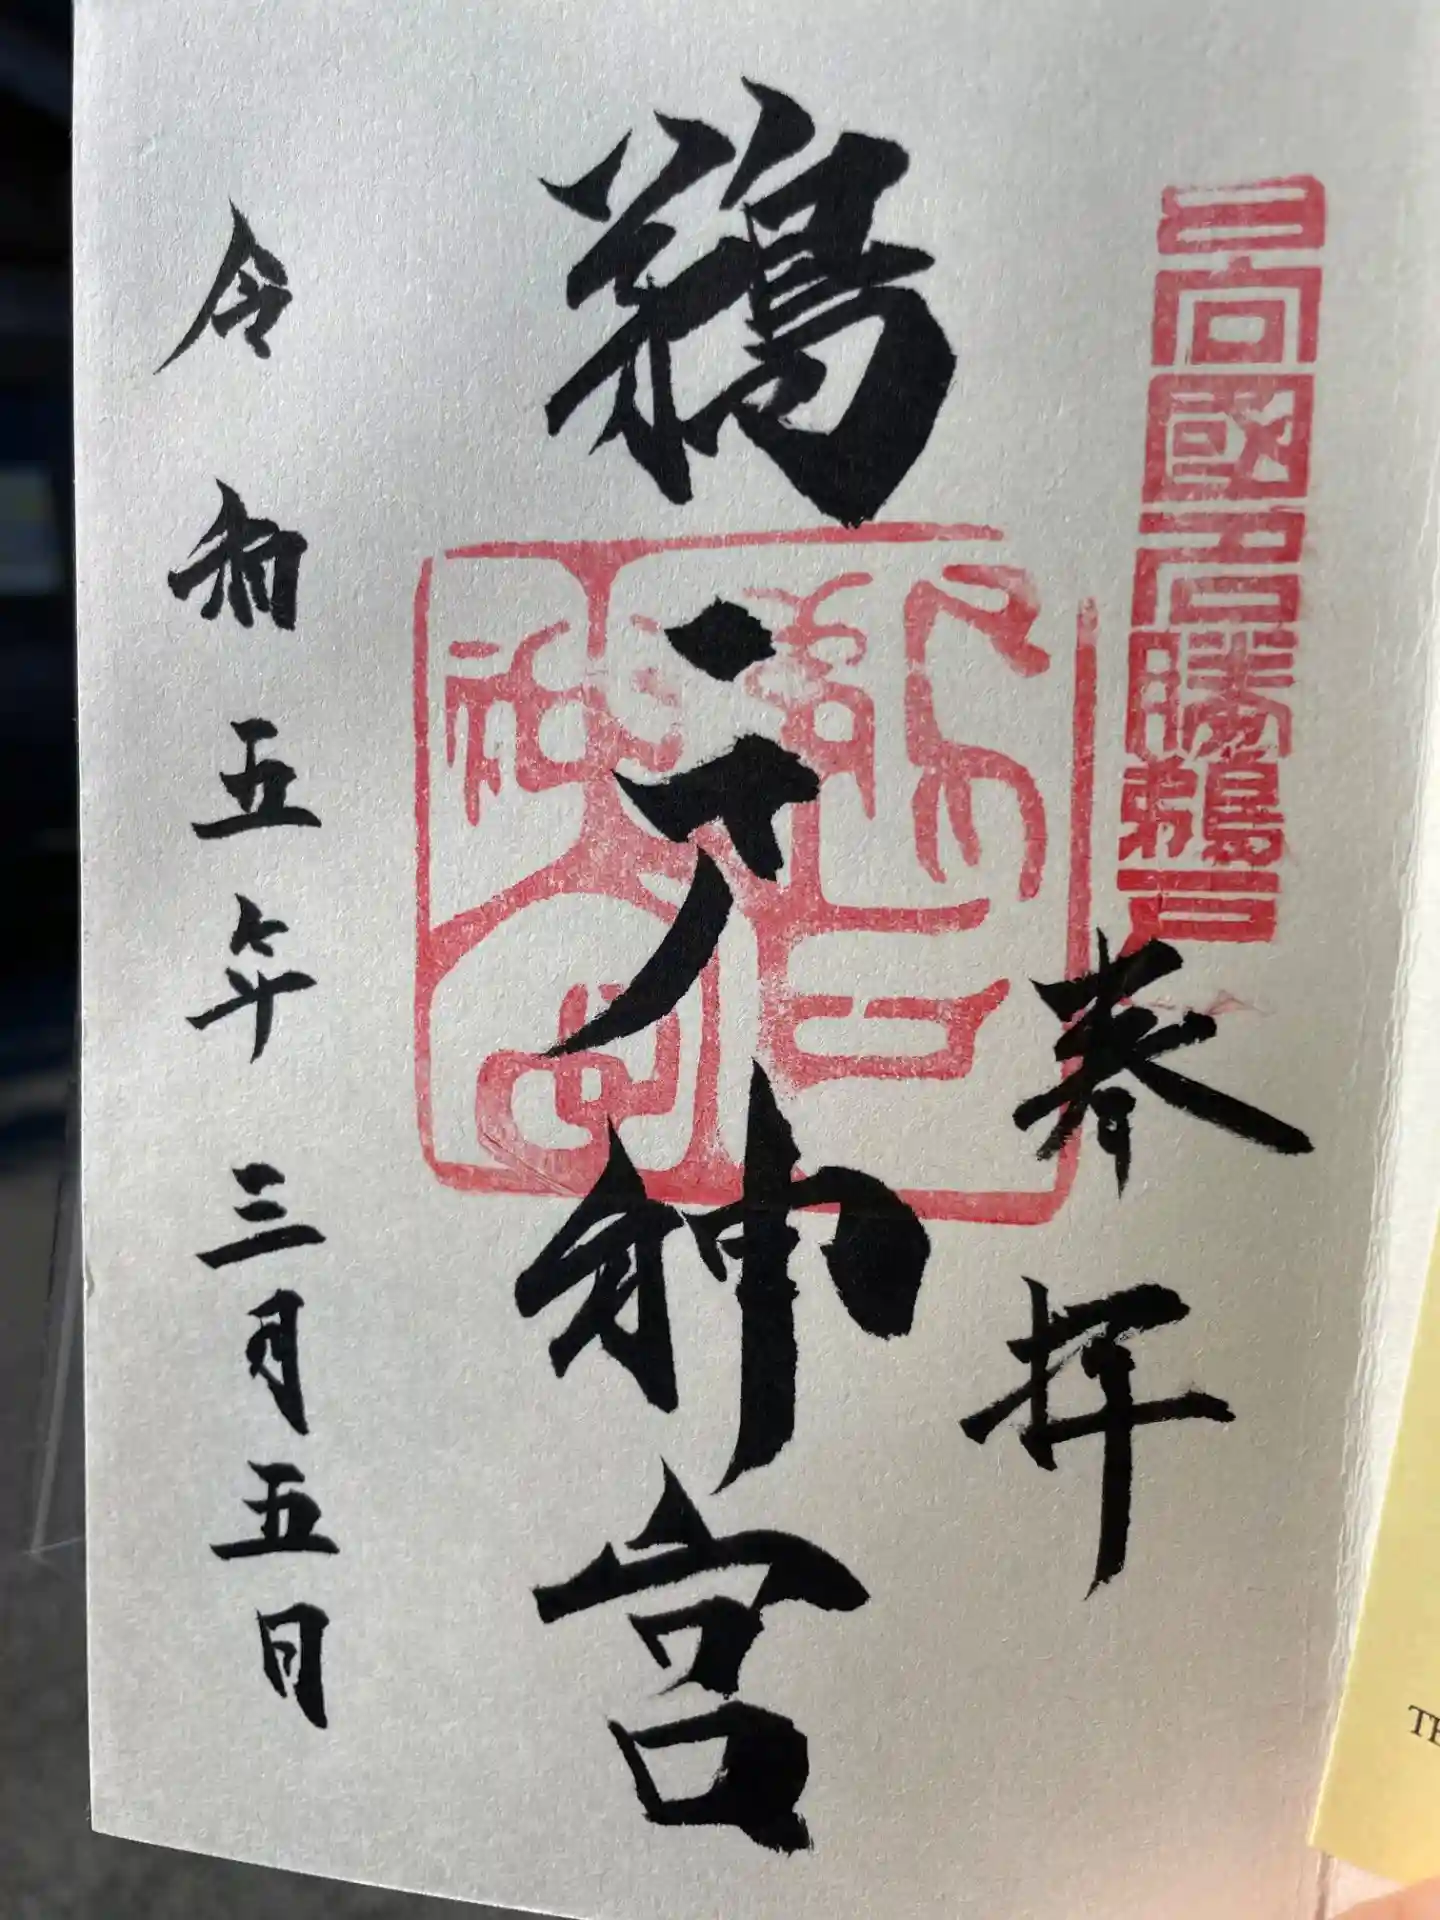 日向國名勝鵜戸
奉拝
鵜戸神宮
鵜戸神宮
令和五年三月五日
TE